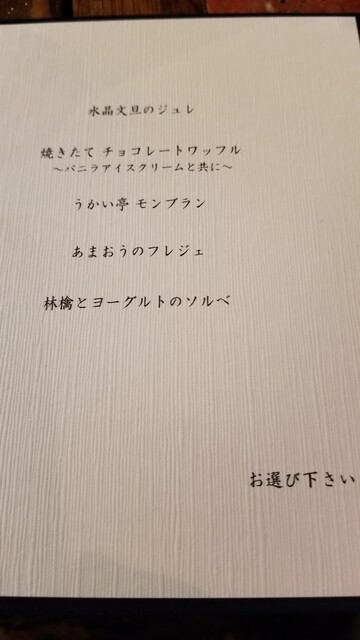 水晶文旦のジュレ
焼きたて チョコレートワッフル
～バニラアイスクリームと共に～
うかい亭 モンブラン
あまおうのフレジェ
林檎とヨーグルトのソルベ
お選び下さい